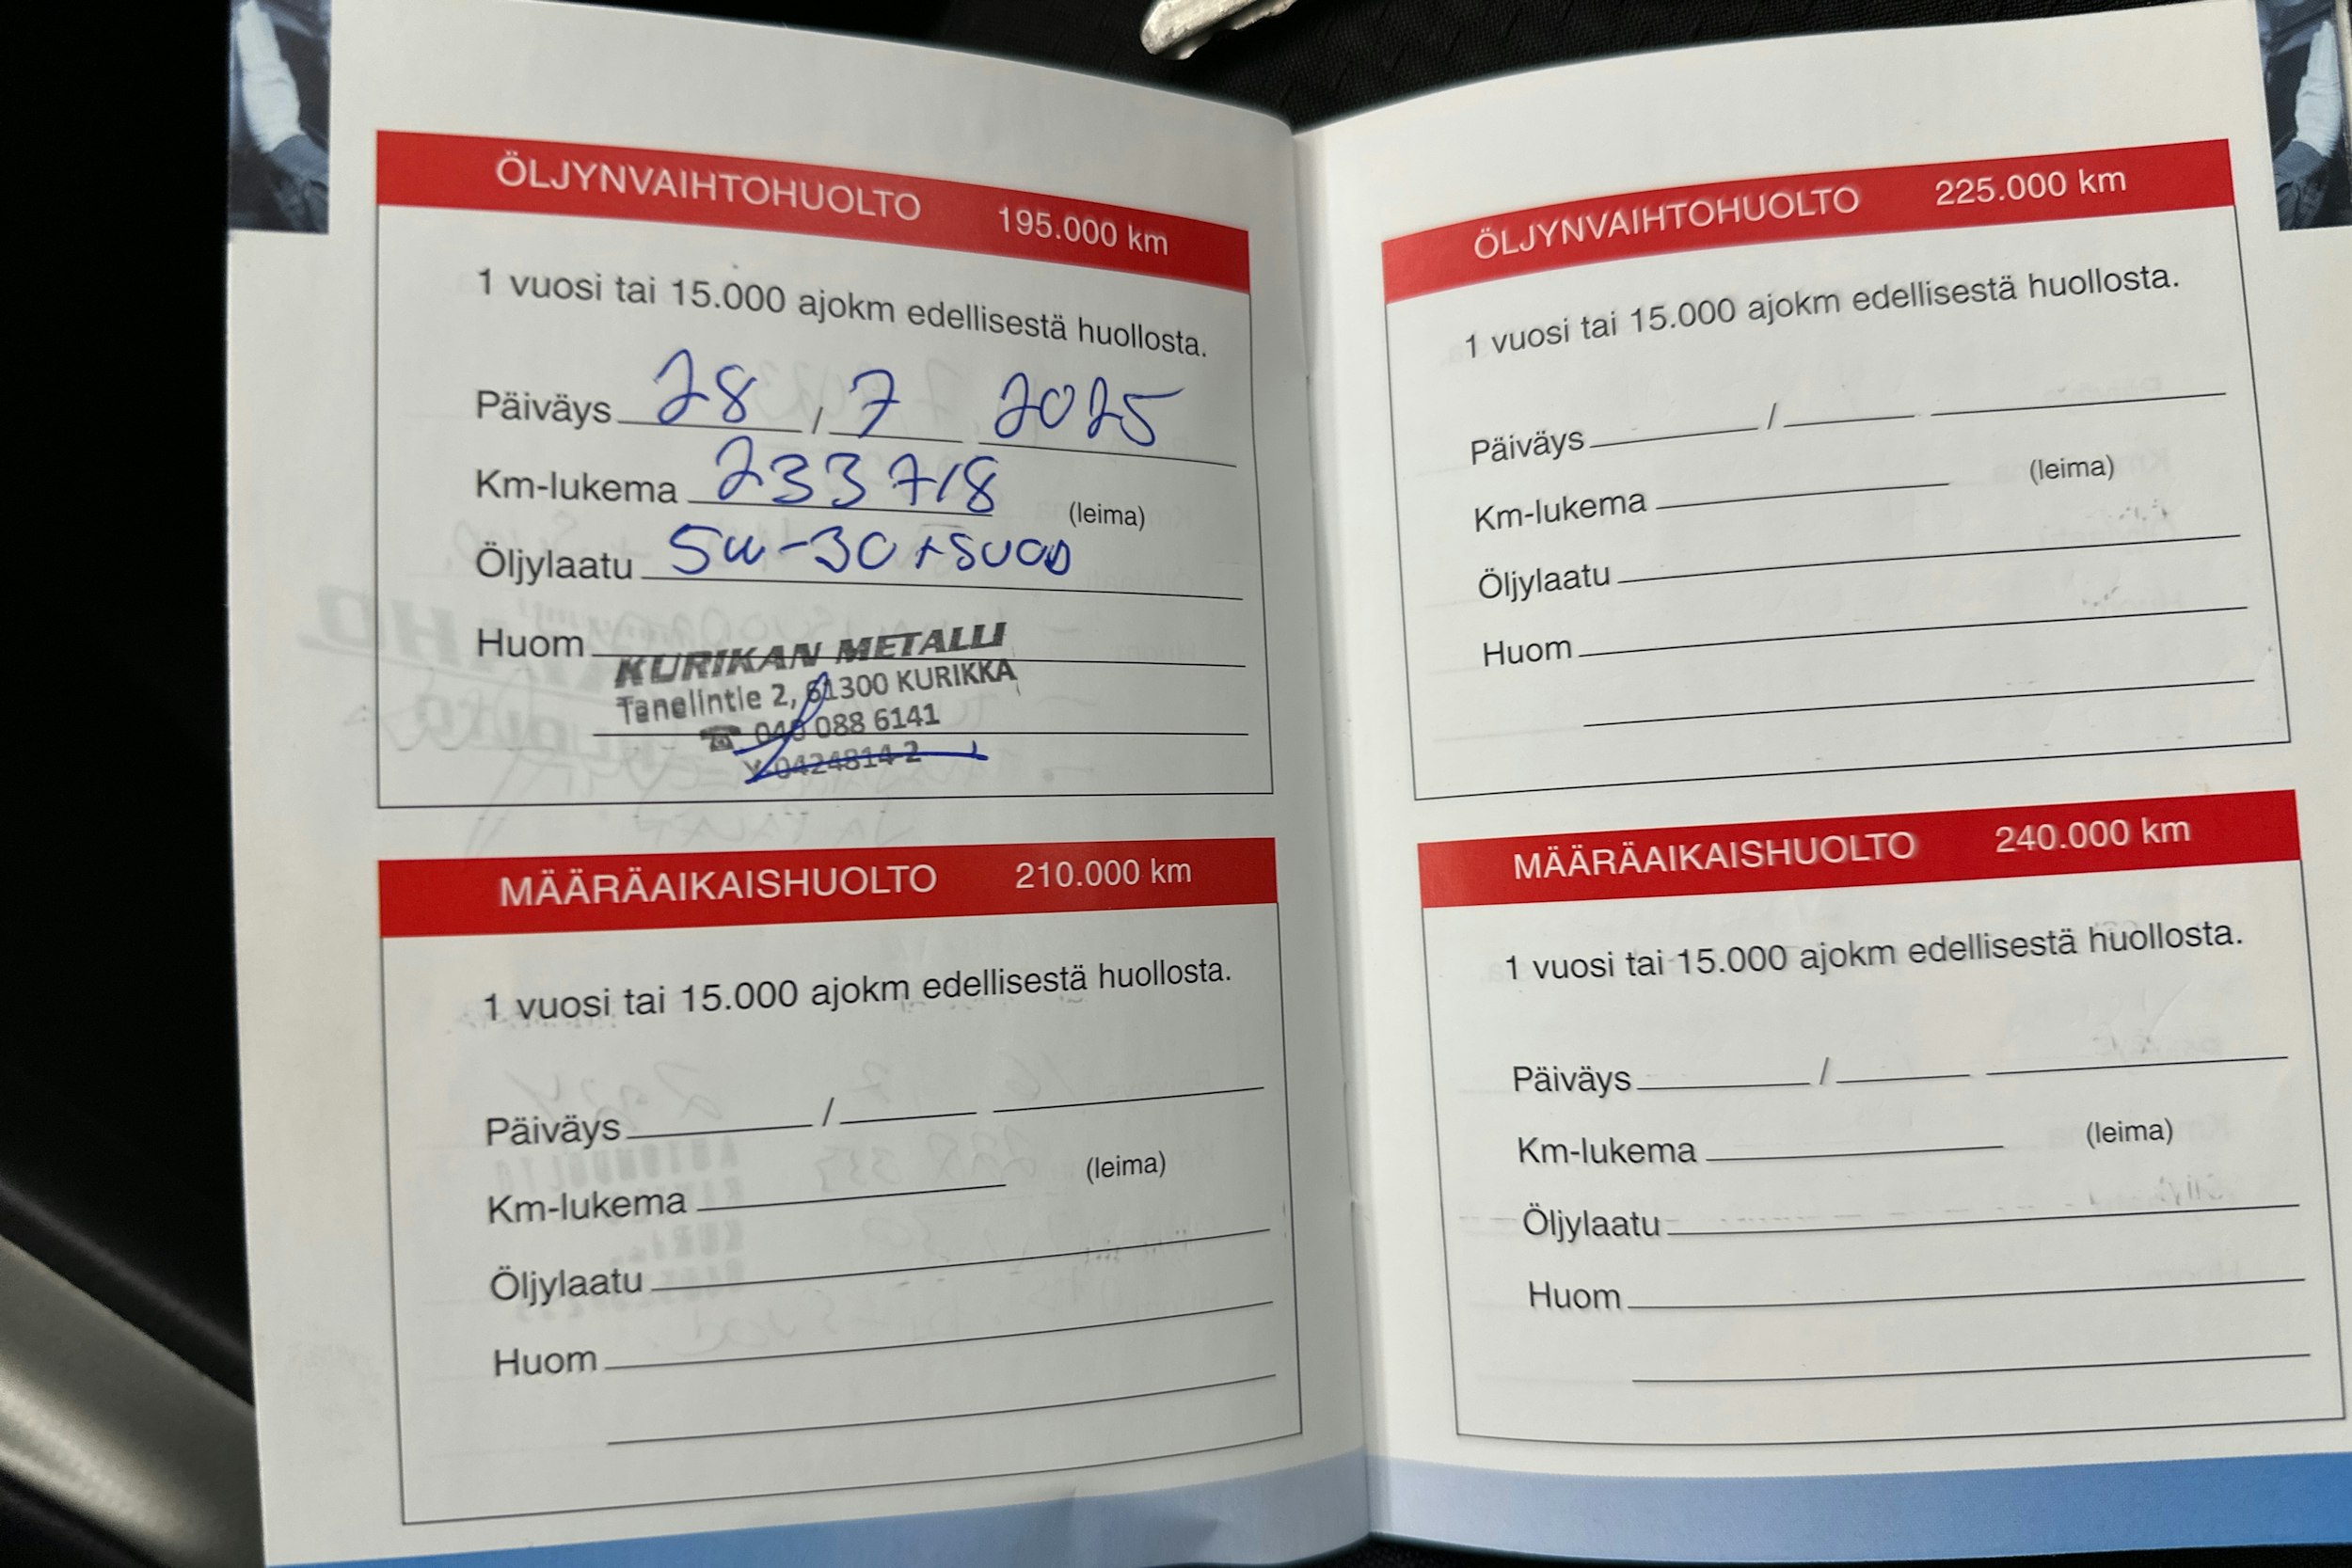 ÖLJYNVAIHTOHUOLTO 195.000 km
1 vuosi tai 15.000 ajokm edellisestä huollosta.
Päiväys 28 / 7 2025
Km-lukema 233718 (leima)
Öljylaatu 5w-30 + suod
Huom
KURIKAN METALLI
Tanelintie 2, 61300 KURIKKA
☎ 040 088 6141
Y-0424814-2
MÄÄRÄAIKAISHUOLTO 210.000 km
1 vuosi tai 15.000 ajokm edellisestä huollosta.
Päiväys / 
Km-lukema (leima)
Öljylaatu
Huom
ÖLJYNVAIHTOHUOLTO 225.000 km
1 vuosi tai 15.000 ajokm edellisestä huollosta.
Päiväys / 
Km-lukema (leima)
Öljylaatu
Huom
MÄÄRÄAIKAISHUOLTO 240.000 km
1 vuosi tai 15.000 ajokm edellisestä huollosta.
Päiväys / 
Km-lukema (leima)
Öljylaatu
Huom